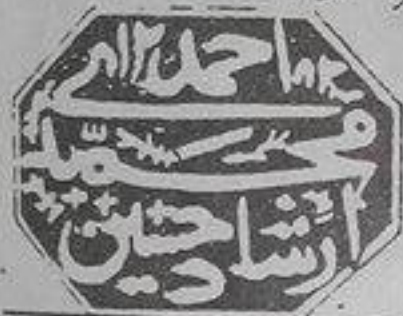 احمدی
محمّد
ارشاد حسین